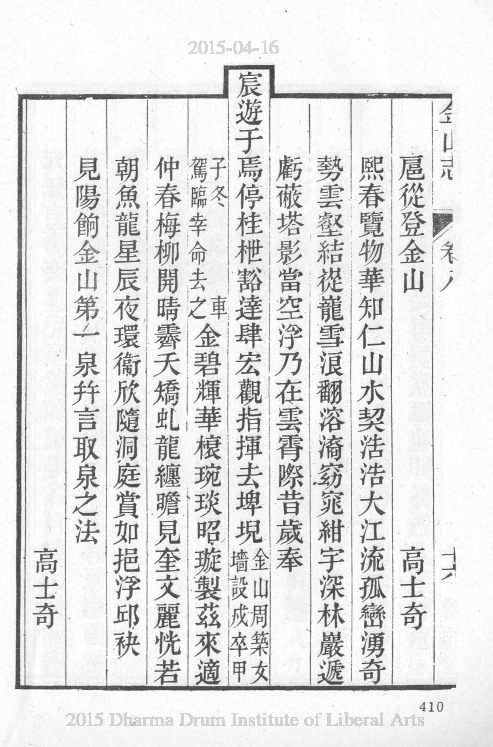 2015-04-16
金山志 卷八
扈從登金山 高士奇
熙春覽物華知仁山水契浩浩大江流孤巒湧奇
勢雲壑結從龍雪浪翻溶漪窈窕紺宇深林巖遞
虧蔽塔影當空浮乃在雲霄際昔歲奉
宸遊于焉停桂枻豁達肆宏觀指揮去埤堄金山周築女墻設戍卒甲
子冬 車駕臨幸命去之金碧輝華榱琬琰昭璇製茲來適
仲春梅柳開晴霽夭矯虬龍纏瞻見奎文麗恍若
朝魚龍星辰夜環衞欣隨洞庭賞如挹浮邱袂
見陽餉金山第一泉幷言取泉之法
高士奇
410
2015 Dharma Drum Institute of Liberal Arts